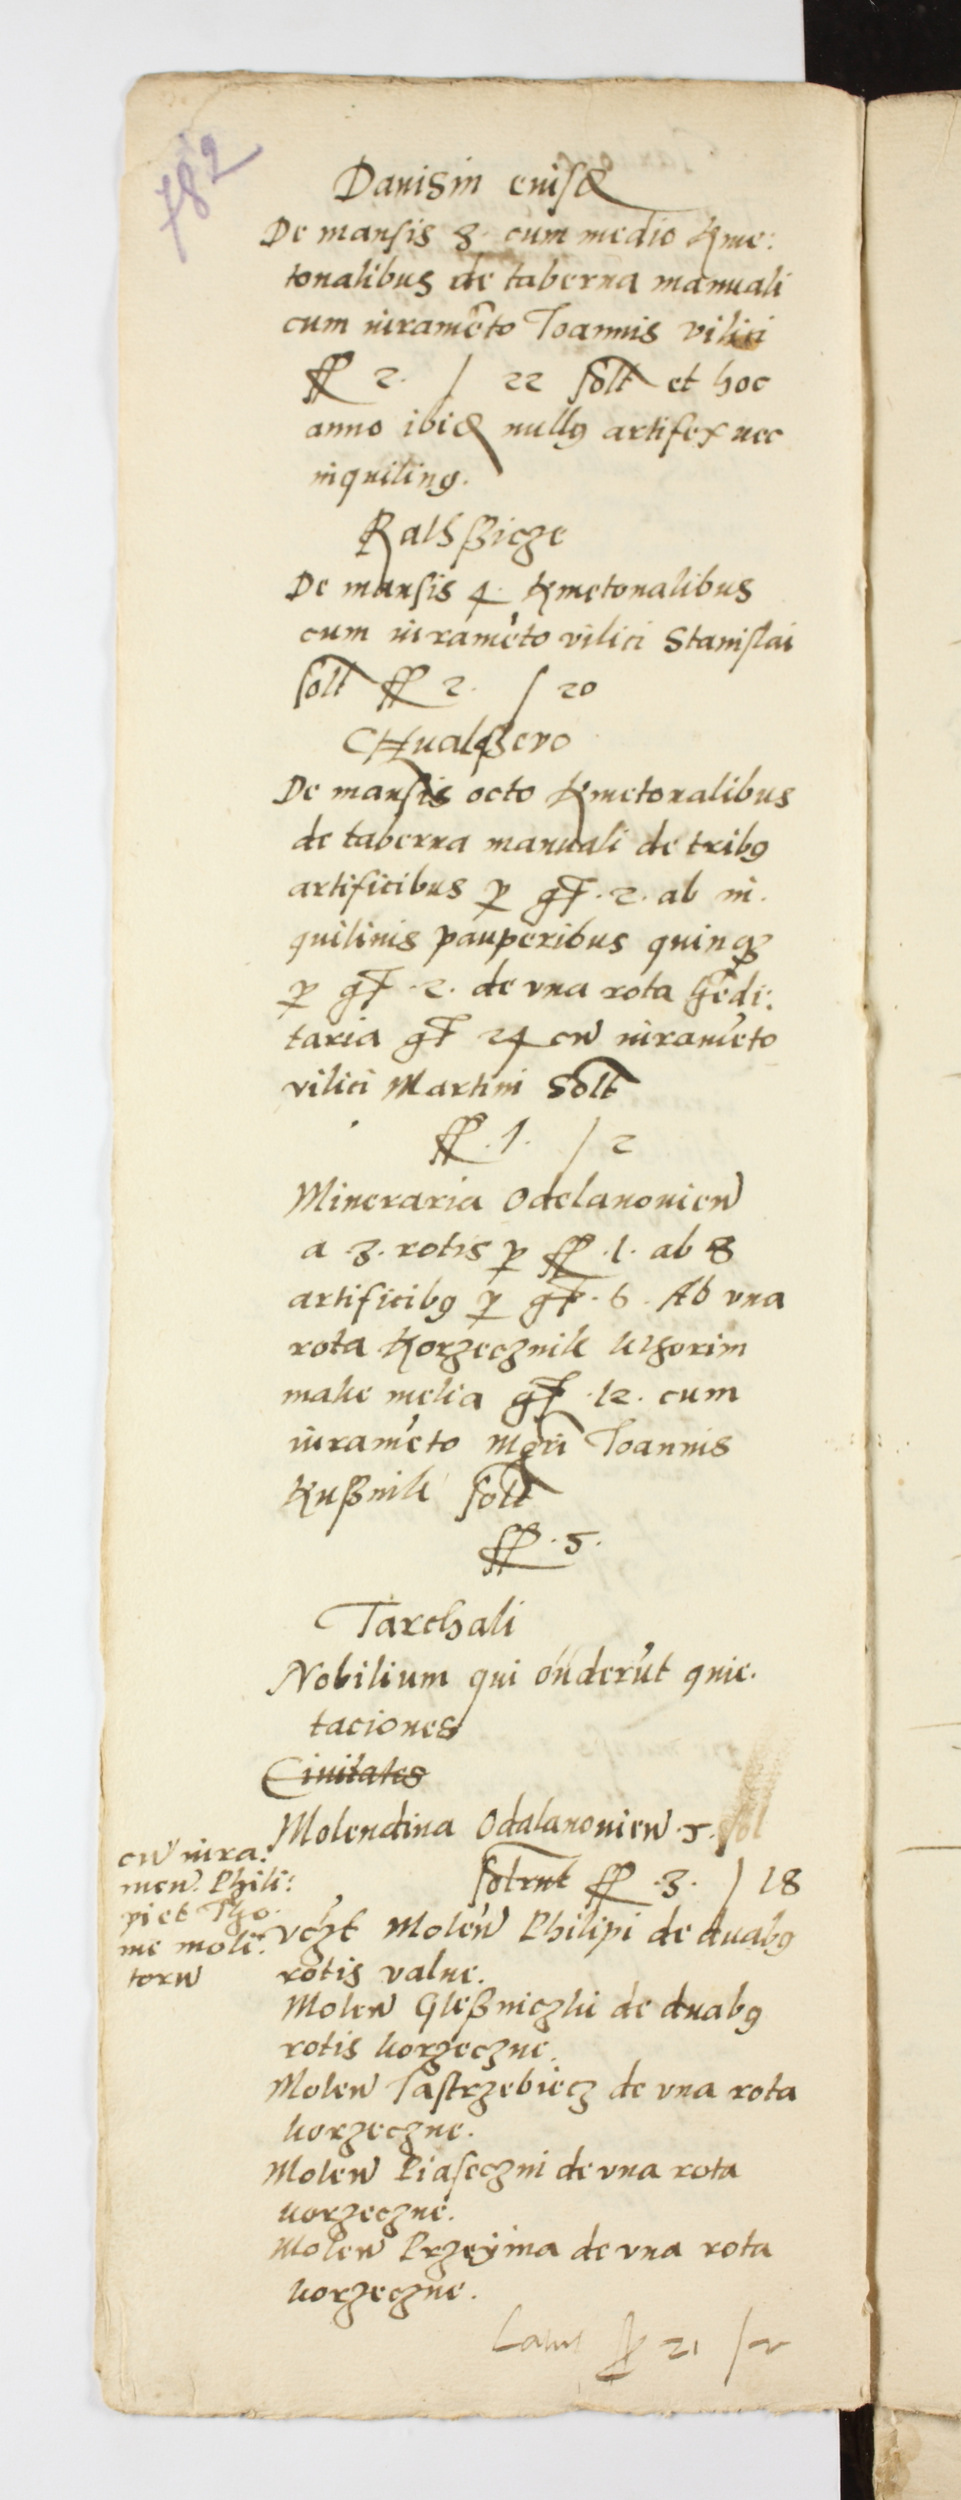 782
Danisin eiusq
De mansis 8 cum medio Kme:
tonalibus de taberna manuali
cum iuramēto Ioannis vilici
ff 2. / 22 solt et hoc
anno ibiq nullq artifex nec
inquiling.
Ralßßicze
De mansis 4 Kmetonalibus
cum iuramēto vilici Stanislai
solt ff 2. / 20
CHualßevo
De mansis octo Kmetonalibus
de taberna manuali de tribg
artificibus p gr. 2. ab in.
quilinis pauperibus quinqz
p gr. 2. de vna rota hēdi:
taria gr 24 cū iuramēto
vilici Martini Solt
ff. 1. / 2
Mineraria Odelanouien
a .3. rotis p ff .1. ab 8
artificibg p gr. 6. Ab vna
rota Korzecznik
melia gr .12. cum
iuramēto mgri Ioannis
Kußnik solt
ff .5.
Tarchali
Nobilium qui ōnderūt quie.
taciones
Ciuitates
Molendina Odalanouien .5. sol
solrnt ff .3. / 18
cū iura:
men. Phili:
pi et Tho.
me moli:
torū
vczt Molen Philipi de duabg
rotis valne.
Molen Gleßniczki de duabg
rotis korzeczne.
Molen Iastrzebiecz de vna rota
korzeczne.
Molen Piaseczni de vna rota
korzeczne.
Molen Przeyma de vna rota
korzeczne.
Latus ff 21 / 2